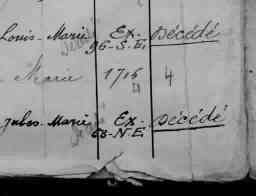 Louis-Marie Ex- Décédé
96-S.E.
Marie 1716 4
Jules-Marie Ex- Décédé
68-N.E.